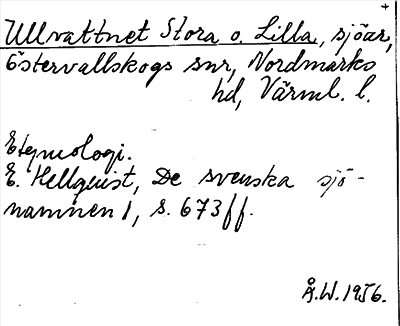 Ullvattnet Stora o. Lilla, sjöar,
Östervallskogs snr, Nordmarks
hd, Värml. l.
Etymologi.
E. Hellquist, De svenska sjö-
namnen 1, s. 673 ff.
Å.W. 1956.